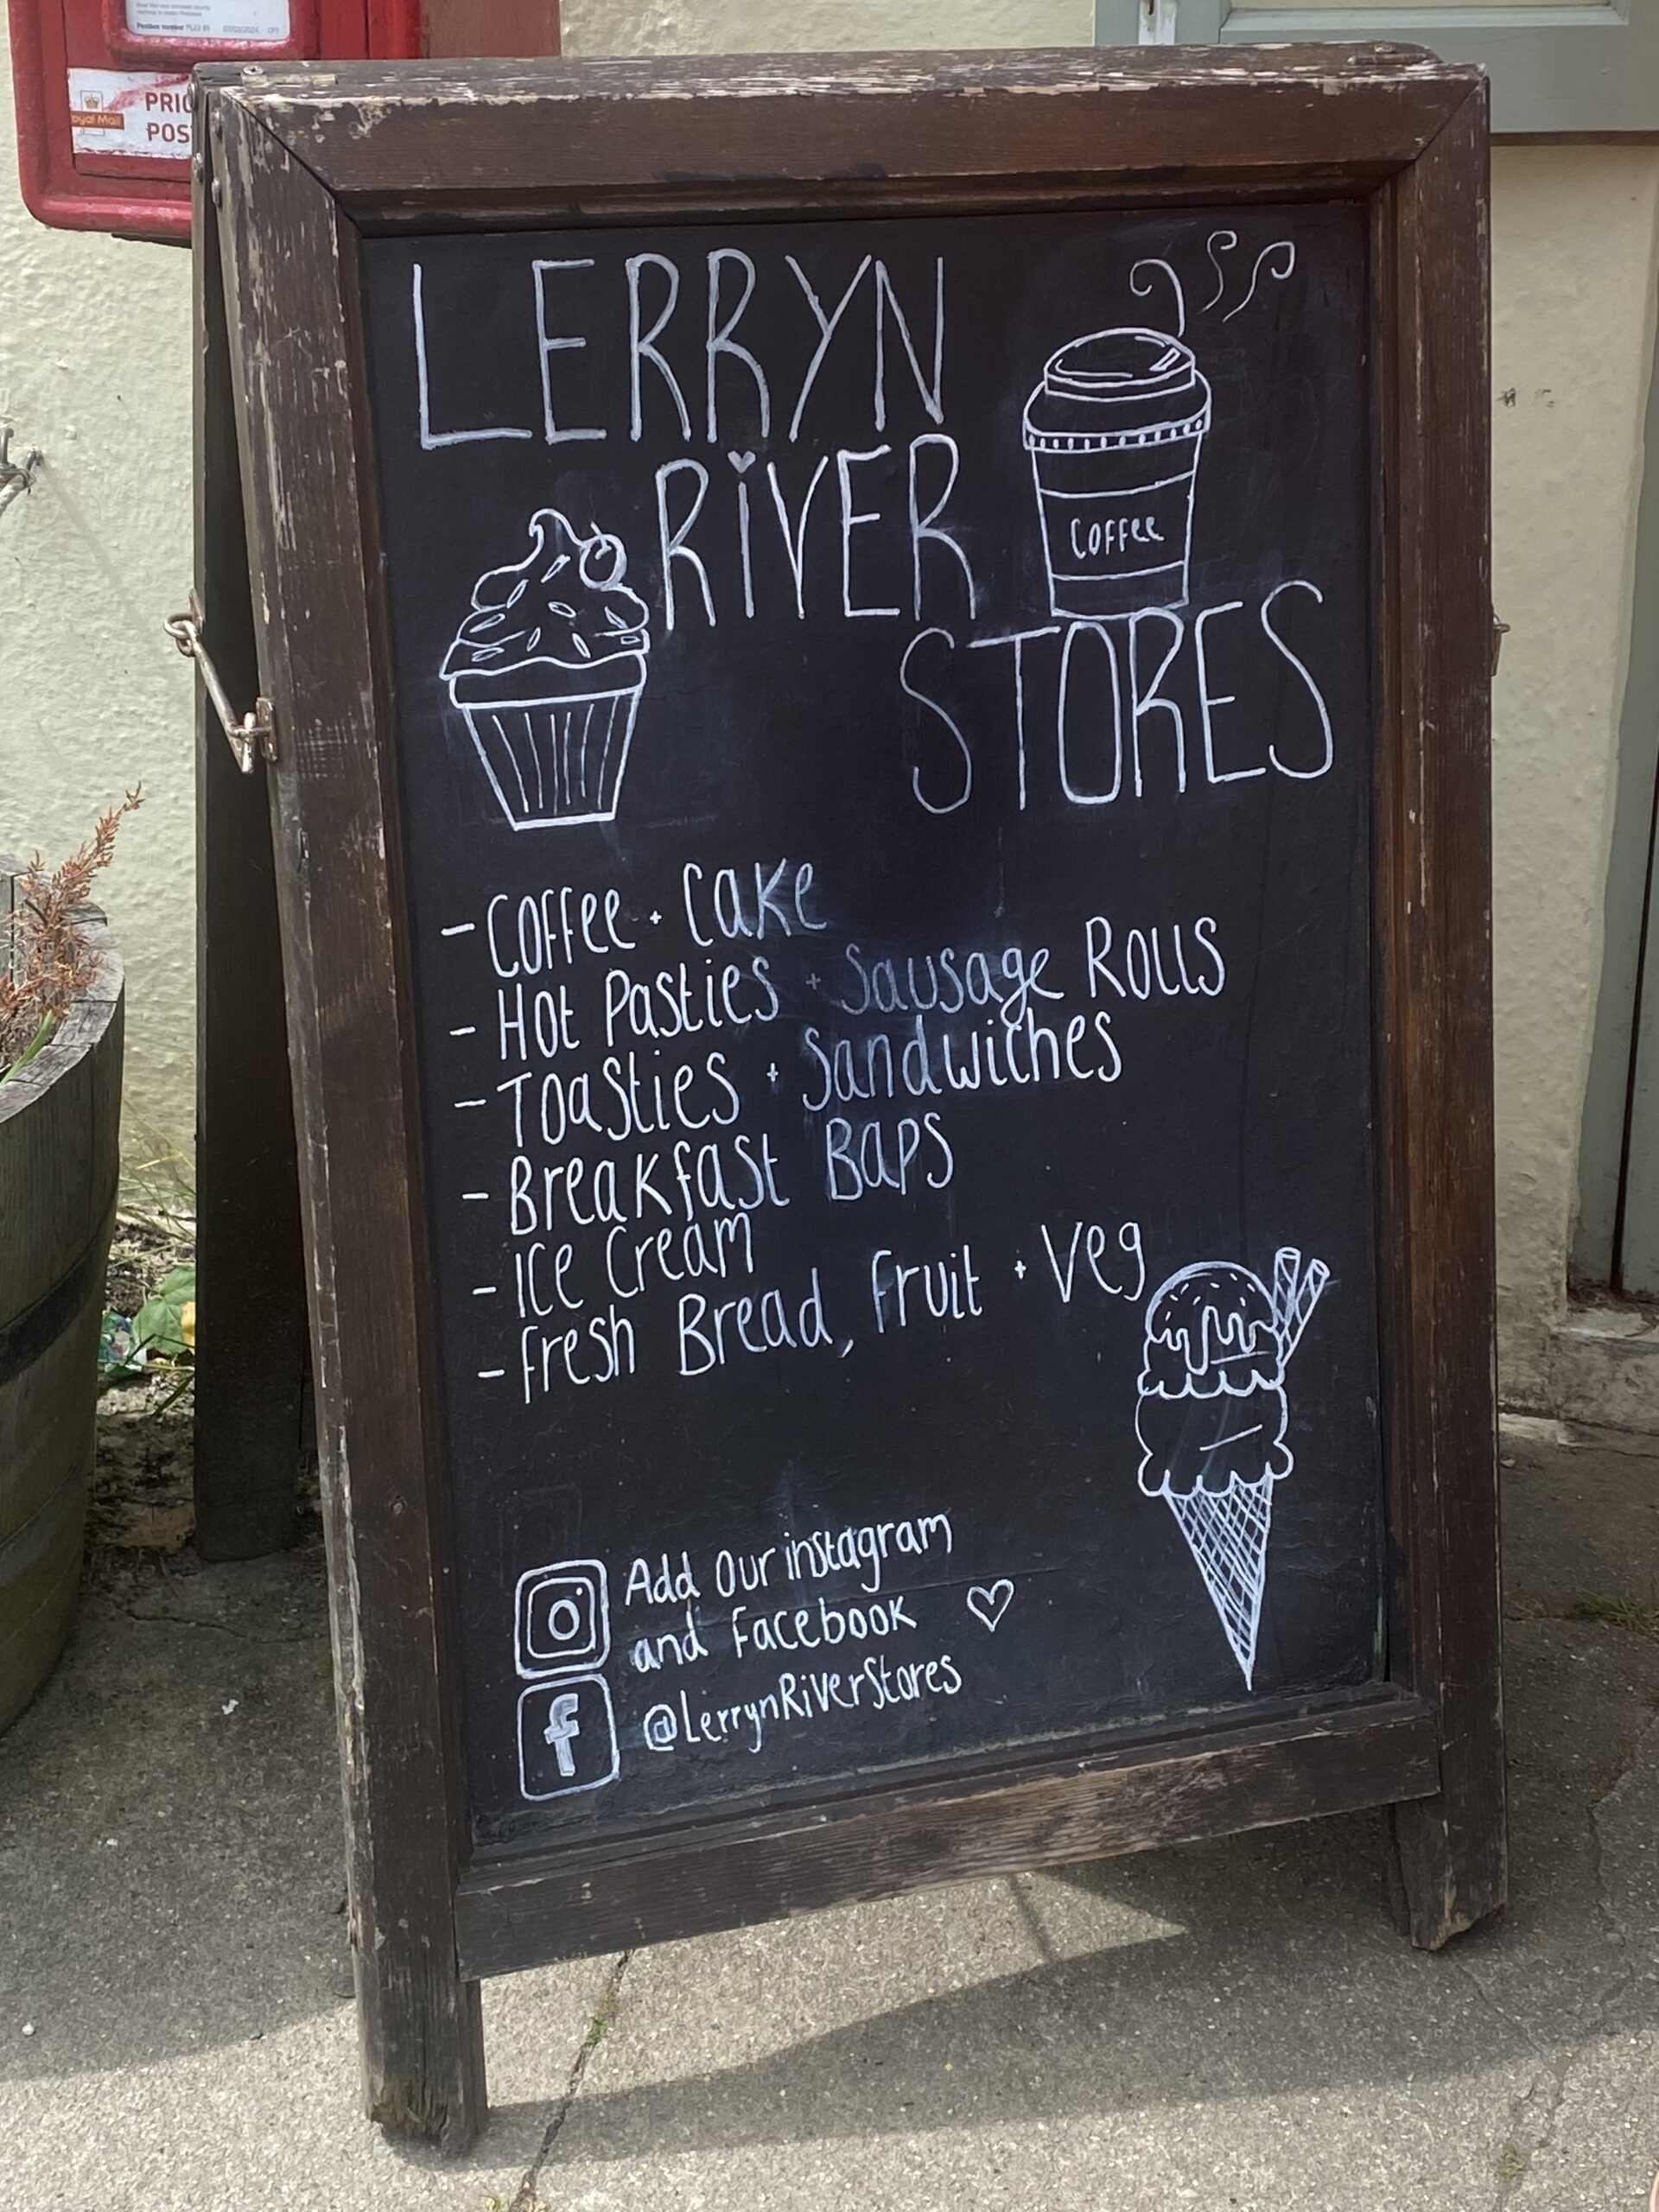 Postbox number PL22 89
Royal Mail
LERRYN
RIVER
STORES
Coffee
- Coffee + Cake
- Hot Pasties + Sausage Rolls
- Toasties + Sandwiches
- Breakfast Baps
- Ice Cream
- Fresh Bread, Fruit + Veg
Add our instagram
and Facebook
@LerrynRiverStores